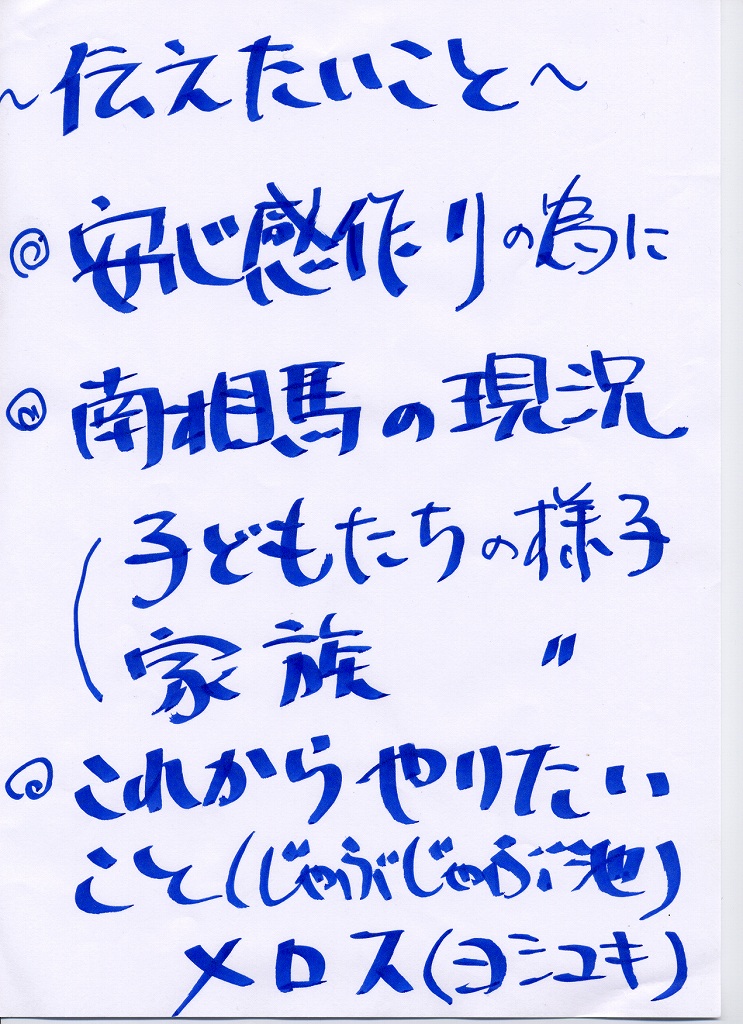 ~伝えたいこと~
◎安心感作りの為に
◎南相馬の現況
(子どもたちの様子
家族 〃
◎これからやりたい
こと(じゃぶじゃぶ池)
メロス(ヨシユキ)